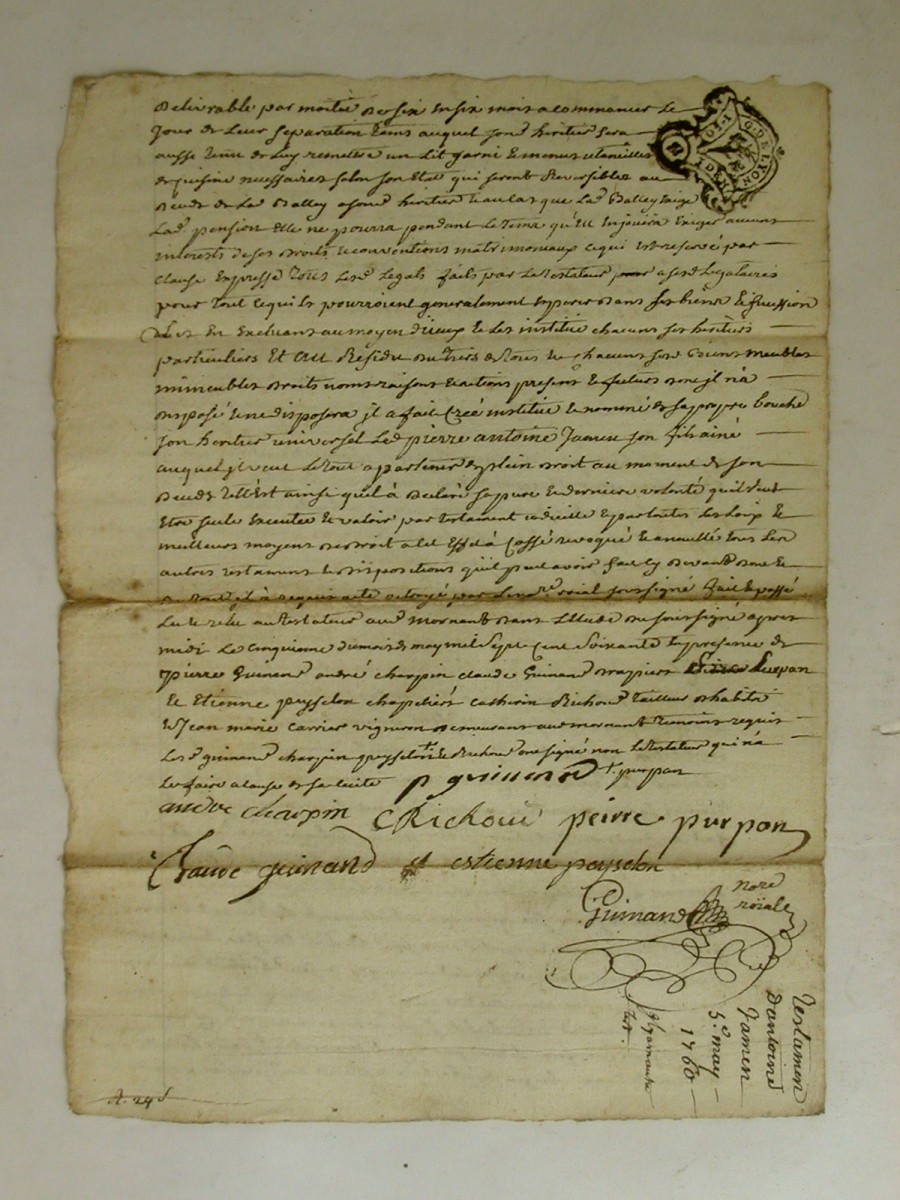 Delivrable par moitié de six en six mois a commancer Le
Jour de Leur separation tems auquel son d heritier sera
aussy tenu de Luy remettre un Lit garni & menus utancilles
de cuisine necessaires selon son Etat qui seront Reversibles au
deceds de La d Balley a son d heritier & au cas que La d Balley Exige
La d pension Elle ne pourra pendant le tems qu'Ell En jouira Exiger aucuns
interests de ses droits & conventions matrimoniaux ce qui est reservé par
clause Expresse tous Les d Legats faits par Le testateur a ses d Legataires
pour tout ce qu'ils pourroient generalement Esperer dans ses biens & succession
Les En Excluant au moyen d'iceux & Les institue chacuns ses heritiers
particuliers Et au Residu du tiers de tous & chacuns ses d Biens meubles
immeubles droits noms raisons & actions presens & futurs dont jl n'a
disposé & ne disposera jl a fait créé institué & nommé de sa propre bouche
son heritier universel Le d pierre antoine Jamen son fils ainé
auquel jl veut Le tout apartenir de plein droit au moment de son
deceds tell Est ainse qu'il à declaré sa pure & derniere volonté qu'il veut
Etre seule Executée & valoir par testament codicille & par toutes Les Loix &
meilleurs moyens de droit a cet Effet à Cassé revoqué & anoullé tous Les
autres testamens & dispositions qu'il peut avoir fait cy devant dont &
du tout jl à requis acte octroyé par Le no.re roial soussigné fait & passé
Lu & relu au testateur au d Mornant dans L'Etude du soussigné apres
midi Le Cinquieme du mois de may mil Sept Cent Soixante En presence de
Pierre Guinand andré charpin claude Guinand drapiers pierre purpan
& Etienne peysselon chapeliers catherin Richoud tailleur d'habits
& Jean marie carrier vigneron demeurant au d mornant temoins requis
Les d guinand charpin peysselon & Richoud ont signé non Le testateur qui n'a
sçu faire a cause de sa cecité p guinand purpan
andre charpin CRichoud peirre purpan
Claude guinand estienne peyselon
Guinand nore
roiale
Testamen
d'antoine
Jamen
5.e may
1760
A. 24 s